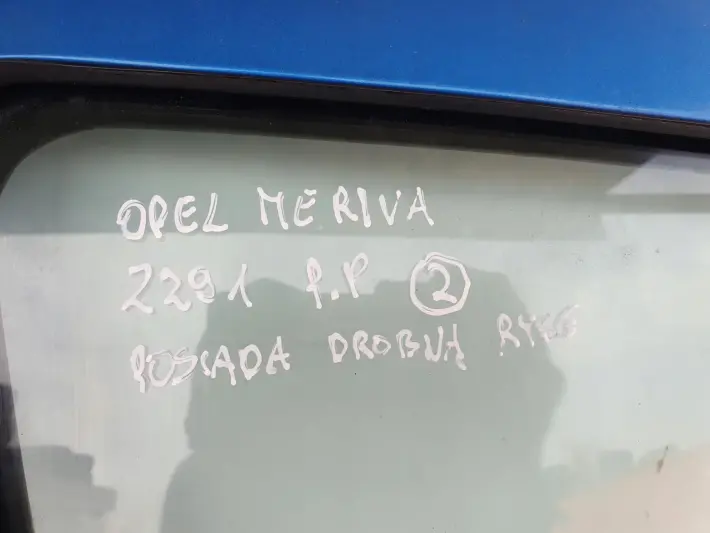 OPEL MERIVA
Z291 P.P 2
POSIADA DROBNĄ RYSĘ